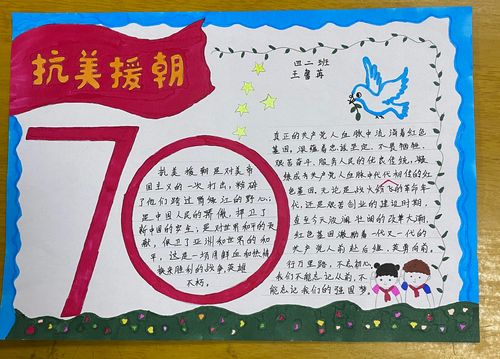 抗美援朝
70
四二班
抗美援朝是对美帝
国主义的一次打击，粉碎
了他们跨过鸭绿江的野心，
是中国人民的骄傲，捍卫了
新中国的安全，是对世界和平的贡
献，保卫了亚洲和世界的和
平，这是一场用鲜血和牺牲
换来胜利的战争，英雄
不朽。
真正的共产党人血脉中流淌着红色
基因，深蕴着忠诚坚定、不畏牺牲、
艰苦奋斗、服务人民的优良传统，凝
炼成为共产党人血脉中代代相传的红
色基因。无论是战火纷飞的革命年
代，还是艰苦创业的建设时期，
直至今天波澜壮阔的改革大潮，
红色基因激励着一代又一代的
共产党人前赴后继，英勇向前。
行万里路，不忘初心，
我们不能忘记从前，不
能忘记我们的强国梦。